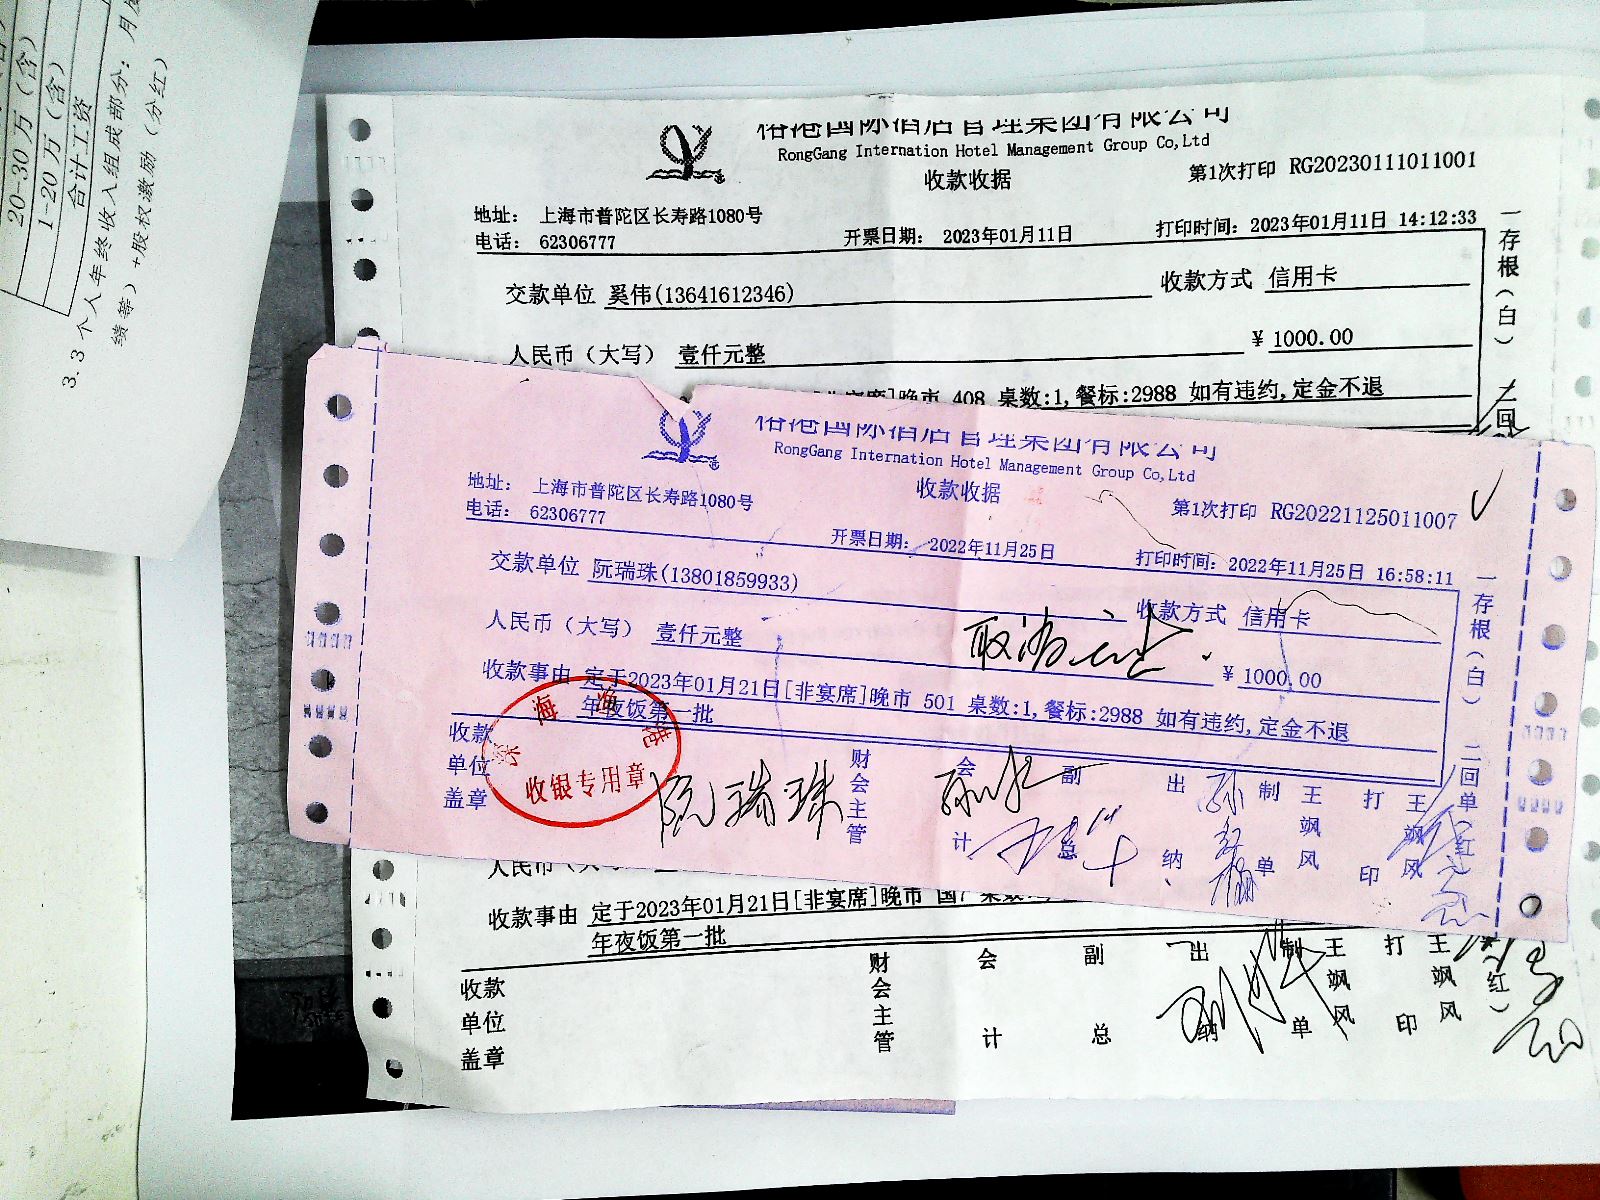 20-30万(含)
1-20万(含)
合计工资
3.3 个人年终收入组成部分：月度
绩等）+股权激励（分红）
裕港国际酒店管理集团有限公司
RongGang Internation Hotel Management Group Co,Ltd
收款收据
第1次打印 RG20230111011001
地址： 上海市普陀区长寿路1080号
电话： 62306777
开票日期： 2023年01月11日
打印时间：2023年01月11日 14:12:33
交款单位 奚伟(13641612346)
收款方式 信用卡
人民币（大写） 壹仟元整
¥ 1000.00
晚市 408 桌数:1,餐标:2988 如有违约,定金不退
一存根（白）
二回
裕港国际酒店管理集团有限公司
RongGang Internation Hotel Management Group Co,Ltd
收款收据
第1次打印 RG20221125011007
地址： 上海市普陀区长寿路1080号
电话： 62306777
开票日期： 2022年11月25日
打印时间：2022年11月25日 16:58:11
交款单位 阮瑞珠(13801859933)
收款方式 信用卡
人民币（大写） 壹仟元整
取消
¥ 1000.00
收款事由 定于2023年01月21日[非宴席]晚市 501 桌数:1,餐标:2988 如有违约,定金不退
年夜饭第一批
一存根（白） 二回单（红）
收款单位盖章
收银专用章
阮瑞珠
财会主管
会计
副总
出纳
制单
王飒风
打印
王飒风
人民币（大写）
收款事由 定于2023年01月21日[非宴席]晚市
年夜饭第一批
收款单位盖章
财会主管
会计
副总
出纳
制单
王飒风
打印
王飒风
红）